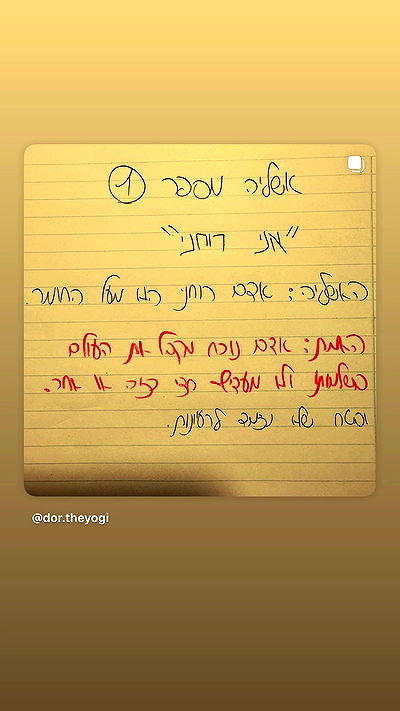 אשליה מספר 1
"אני רוחני"
האשליה: אדם רוחני הוא מעל החומר.
האמת: אדם נוכח מקבל את העולם
בשלמותו ולא מעדיף חצי כזה או אחר.
ובטח שלא נצמד לרעיונות.
@dor.theyogi